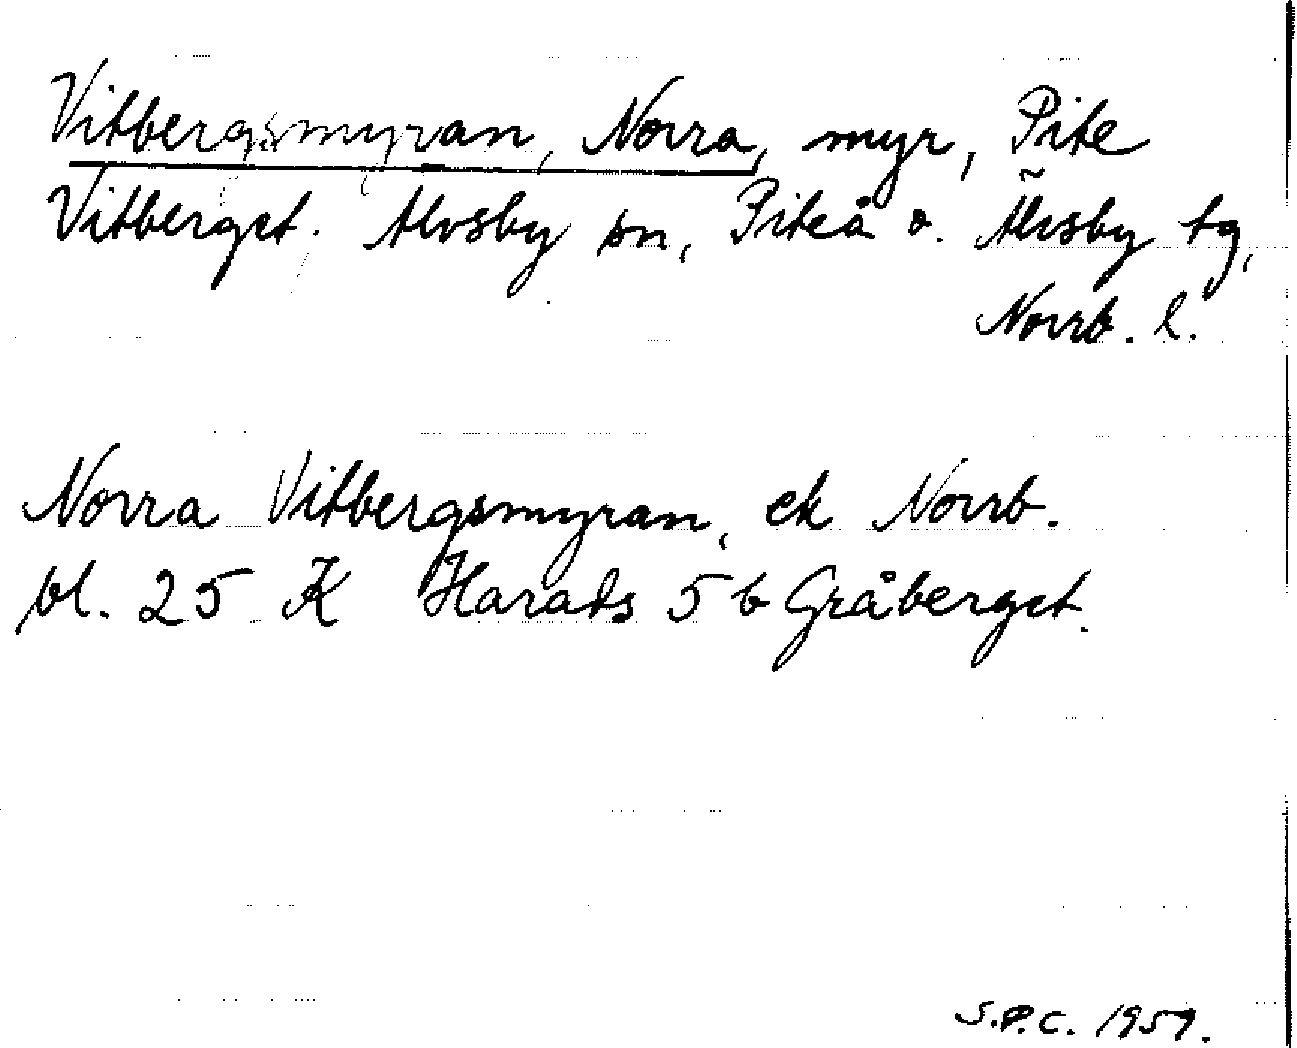 Vitbergsmyran, Norra, myr, Pite
Vitberget. Älvsby sn, Piteå o. Älvsby tg,
Norrb. l.
Norra Vitbergsmyran, ek Norrb.
bl. 25 K Harads 5 b Gråberget.
S.P.C. 1959.